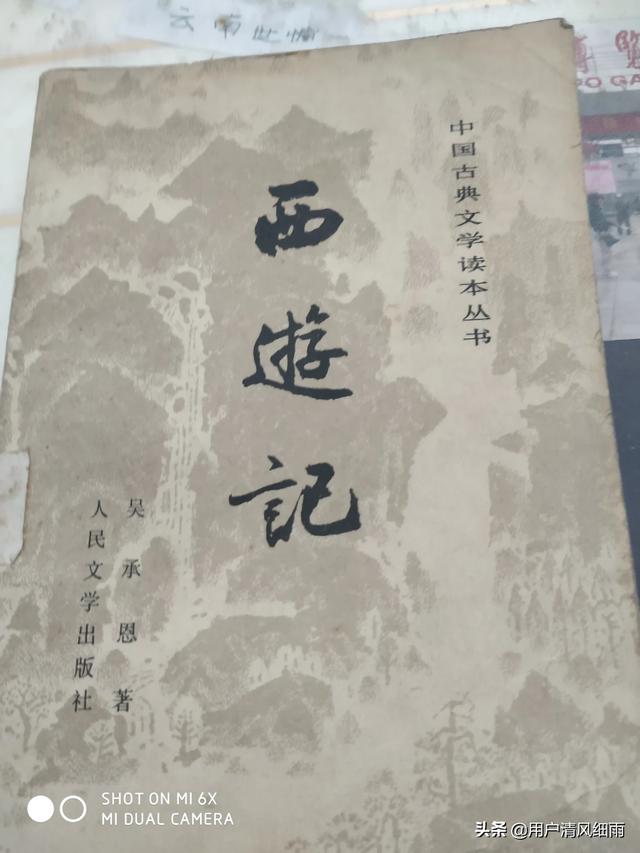 中国古典文学读本丛书
西遊記
吴承恩 著
人民文学出版社
云南
PO GA
SHOT ON MI 6X
MI DUAL CAMERA
头条 @用户清风细雨